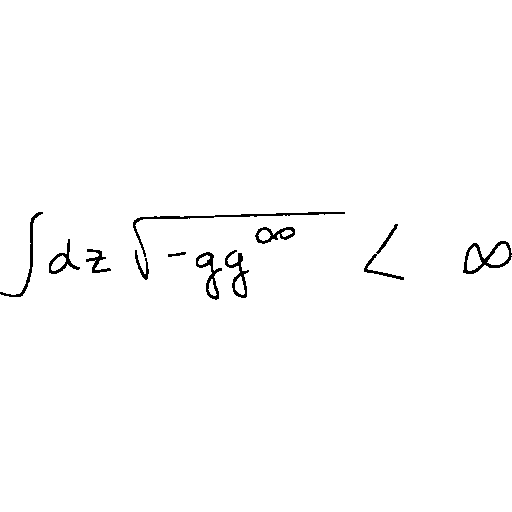 \int dz \sqrt{-gg^{\infty}} < \infty